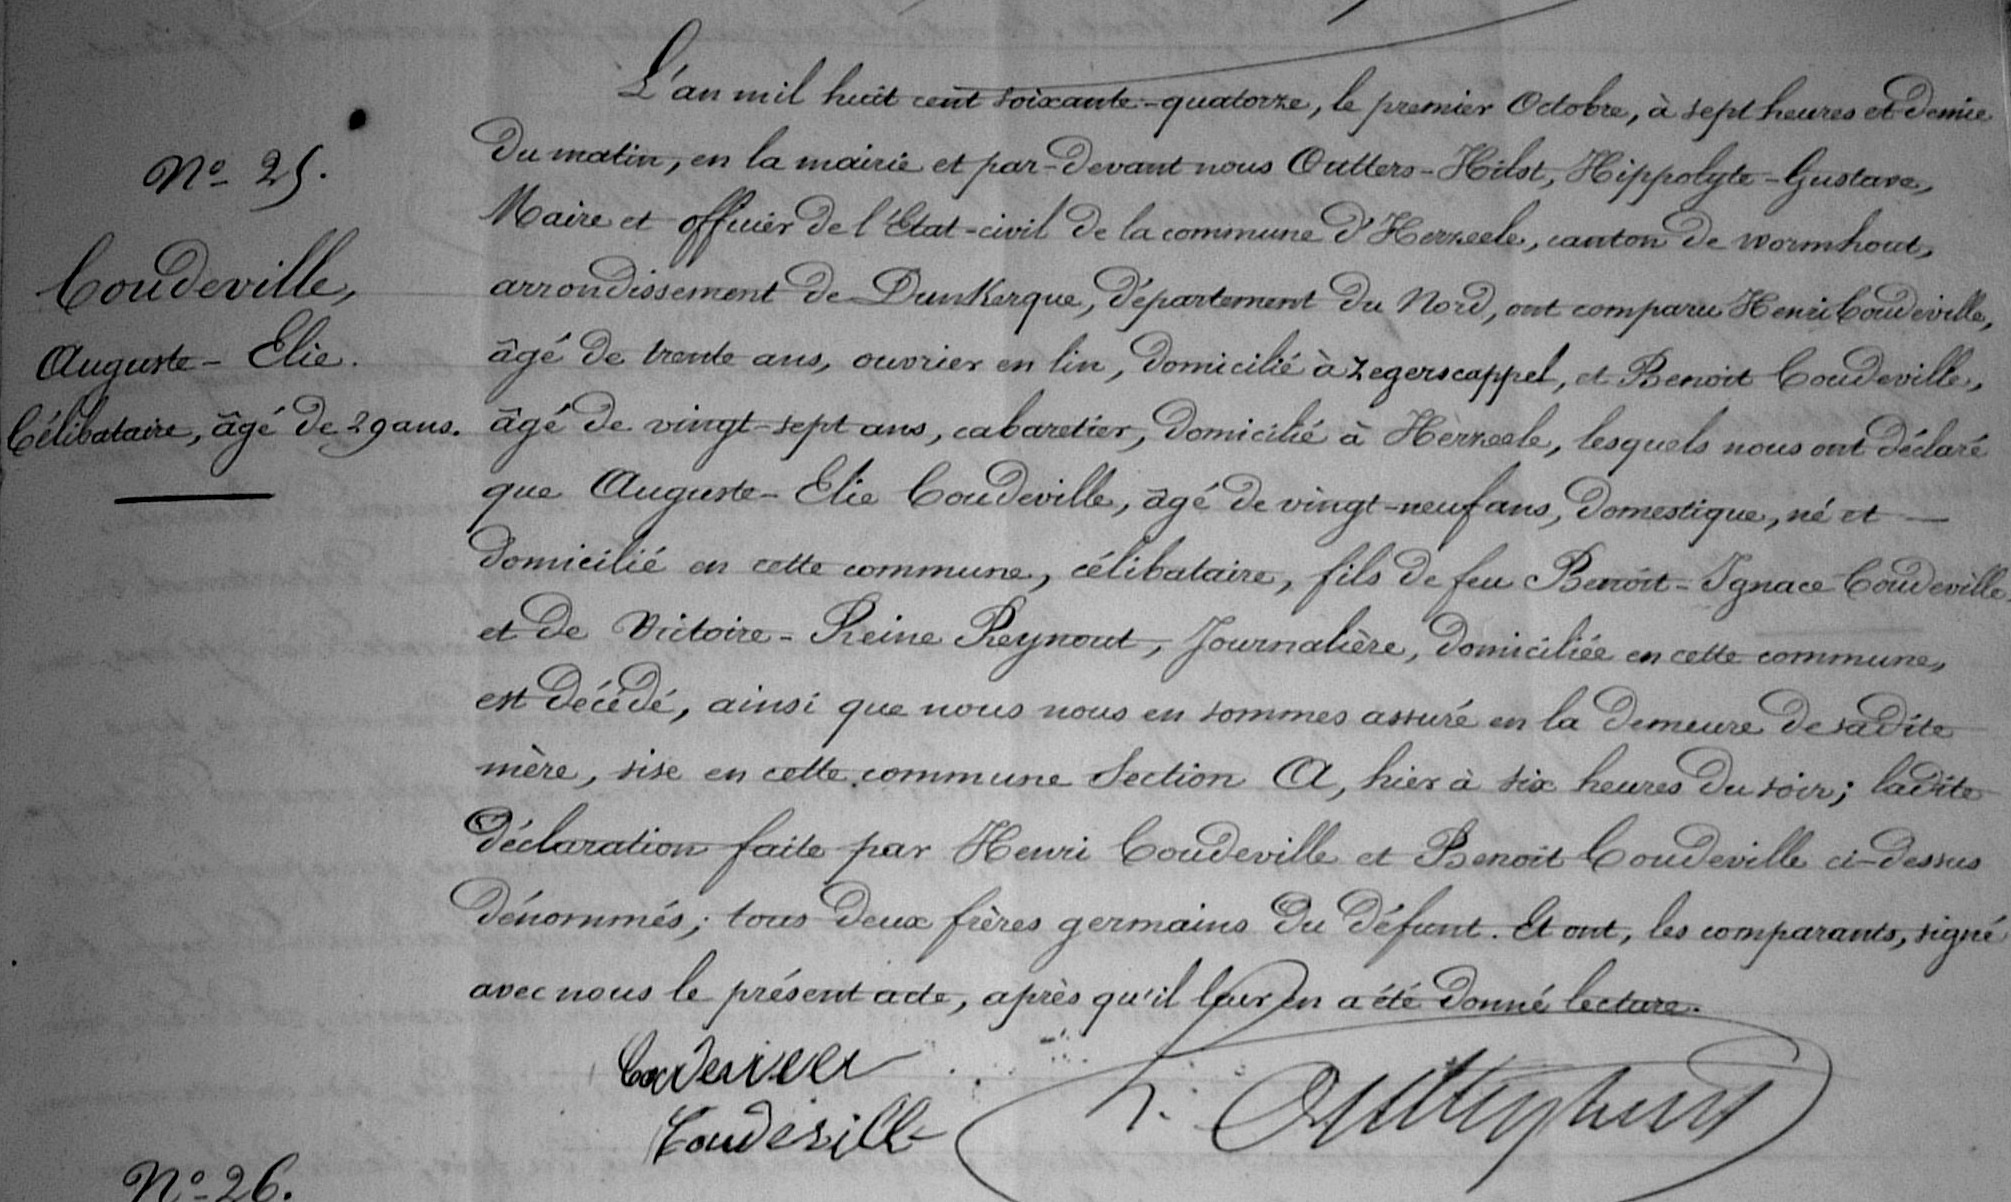 L'an mil huit cent soixante-quatorze, le premier Octobre, à sept heures et demie
du matin, en la mairie et par-devant nous Outters-Hilst, Hippolyte-Gustave,
Maire et officier de l'Etat-civil de la commune d'Herzeele, canton de wormhout,
arrondissement de Dunkerque, département du Nord, ont comparu Henri Coudeville,
âgé de trente ans, ouvrier en lin, domicilié à Zegerscappel, et Benoit Coudeville,
âgé de vingt-sept ans, cabaretier, domicilié à Herzeele, lesquels nous ont déclaré
que Auguste-Elie Coudeville, âgé de vingt-neuf ans, domestique, né et —
domicilié en cette commune, célibataire, fils de feu Benoit-Ignace Coudeville
et de Victoire-Reine Reynout, Journalière, domiciliée en cette commune,
est décédé, ainsi que nous nous en sommes assuré en la demeure de sadite
mère, sise en cette commune Section A, hier à six heures du soir; ladite
déclaration faite par Henri Coudeville et Benoit Coudeville ci-dessus
dénommés; tous deux frères germains du défunt. Et ont, les comparants, signé
avec nous le présent acte, après qu'il leur en a été donné lecture.
Nº 25.
Coudeville,
Auguste-Elie.
Célibataire, âgé de 29 ans.
Coudeville
Nº 26.